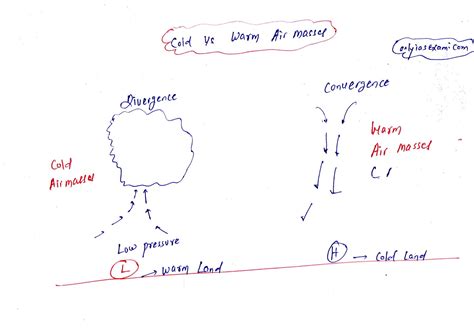 Cold Vs Warm Air masses
onlyiasexam.com
Divergence
Convergence
Cold
Air masses
Warm
Air masses
Low pressure
L → Warm Land
H → Cold Land